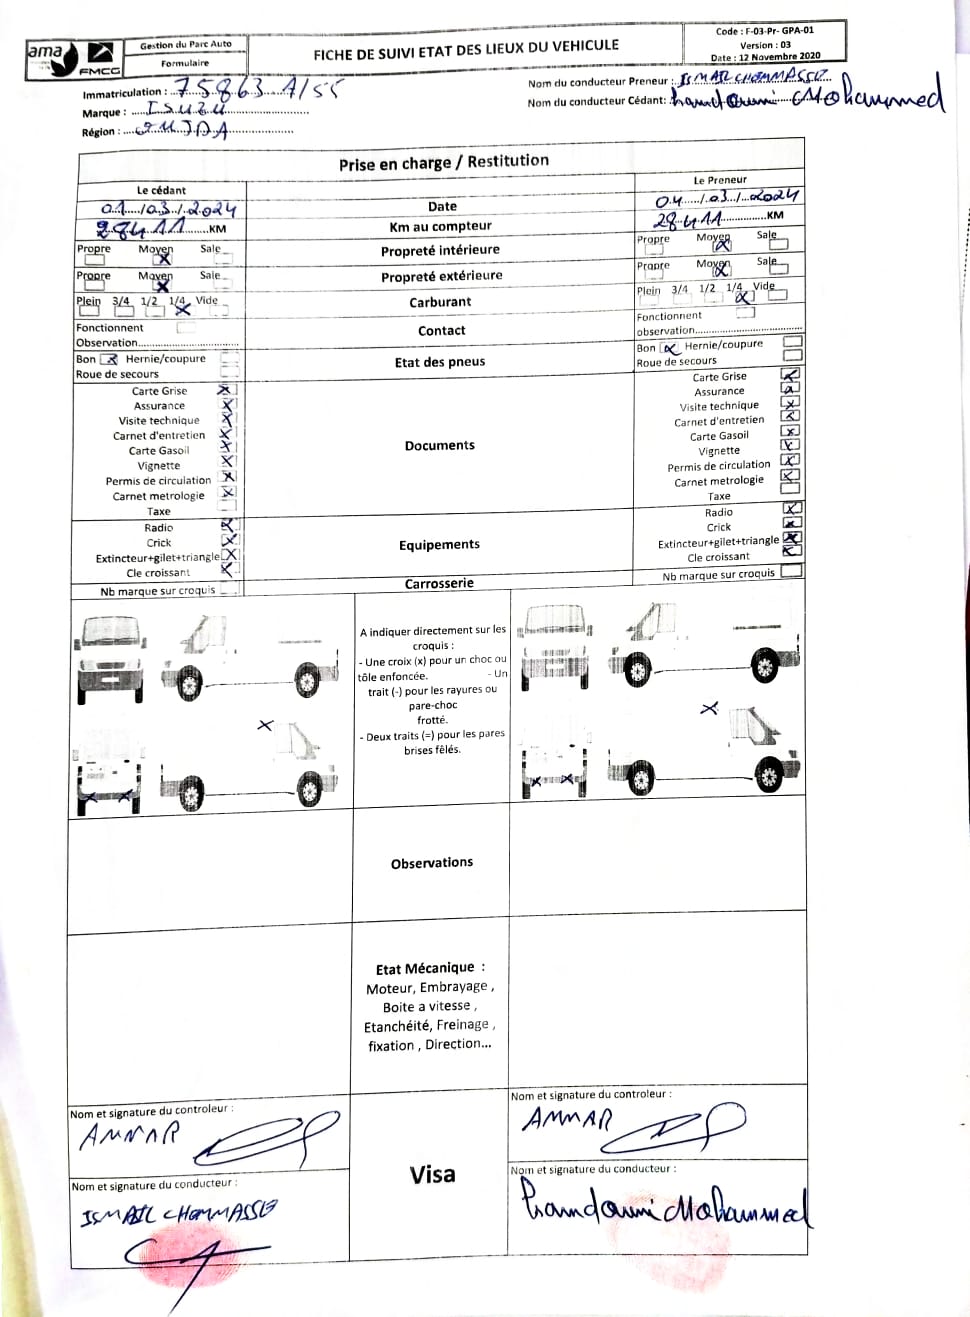 ama
FMCG
Gestion du Parc Auto
Formulaire
FICHE DE SUIVI ETAT DES LIEUX DU VEHICULE
Code : F-03-Pr- GPA-01
Version : 03
Date : 12 Novembre 2020
Immatriculation : 75863 A/55
Marque : ISUZU
Région : OUJDA
Nom du conducteur Preneur : ISMAIL CHOMMASSE
Nom du conducteur Cédant: Mohammed
Prise en charge / Restitution
Le cédant
Le Preneur
01/03/2024
Date
04/03/2024
28411 KM
Km au compteur
28411 KM
Propre Moyen Sale
Propreté intérieure
Propre Moyen Sale
Propre Moyen Sale
Propreté extérieure
Propre Moyen Sale
Plein 3/4 1/2 1/4 Vide
Carburant
Plein 3/4 1/2 1/4 Vide
Fonctionnent
Observation
Contact
Fonctionnent
observation
Bon Hernie/coupure
Roue de secours
Etat des pneus
Bon Hernie/coupure
Roue de secours
Carte Grise
Assurance
Visite technique
Carnet d'entretien
Carte Gasoil
Vignette
Permis de circulation
Carnet metrologie
Taxe
Documents
Carte Grise
Assurance
Visite technique
Carnet d'entretien
Carte Gasoil
Vignette
Permis de circulation
Carnet metrologie
Taxe
Radio
Crick
Extincteur+gilet+triangle
Cle croissant
Equipements
Radio
Crick
Extincteur+gilet+triangle
Cle croissant
Nb marque sur croquis
Carrosserie
Nb marque sur croquis
A indiquer directement sur les
croquis :
- Une croix (x) pour un choc ou
tôle enfoncée. - Un
trait (-) pour les rayures ou
pare-choc
frotté.
- Deux traits (=) pour les pares
brises fêlés.
Observations
Etat Mécanique :
Moteur, Embrayage ,
Boite a vitesse ,
Etanchéité, Freinage ,
fixation , Direction...
Nom et signature du controleur :
AMMAR
Visa
Nom et signature du controleur :
AMMAR
Nom et signature du conducteur :
ISMAIL CHOMMASSE
Nom et signature du conducteur :
Mohammed